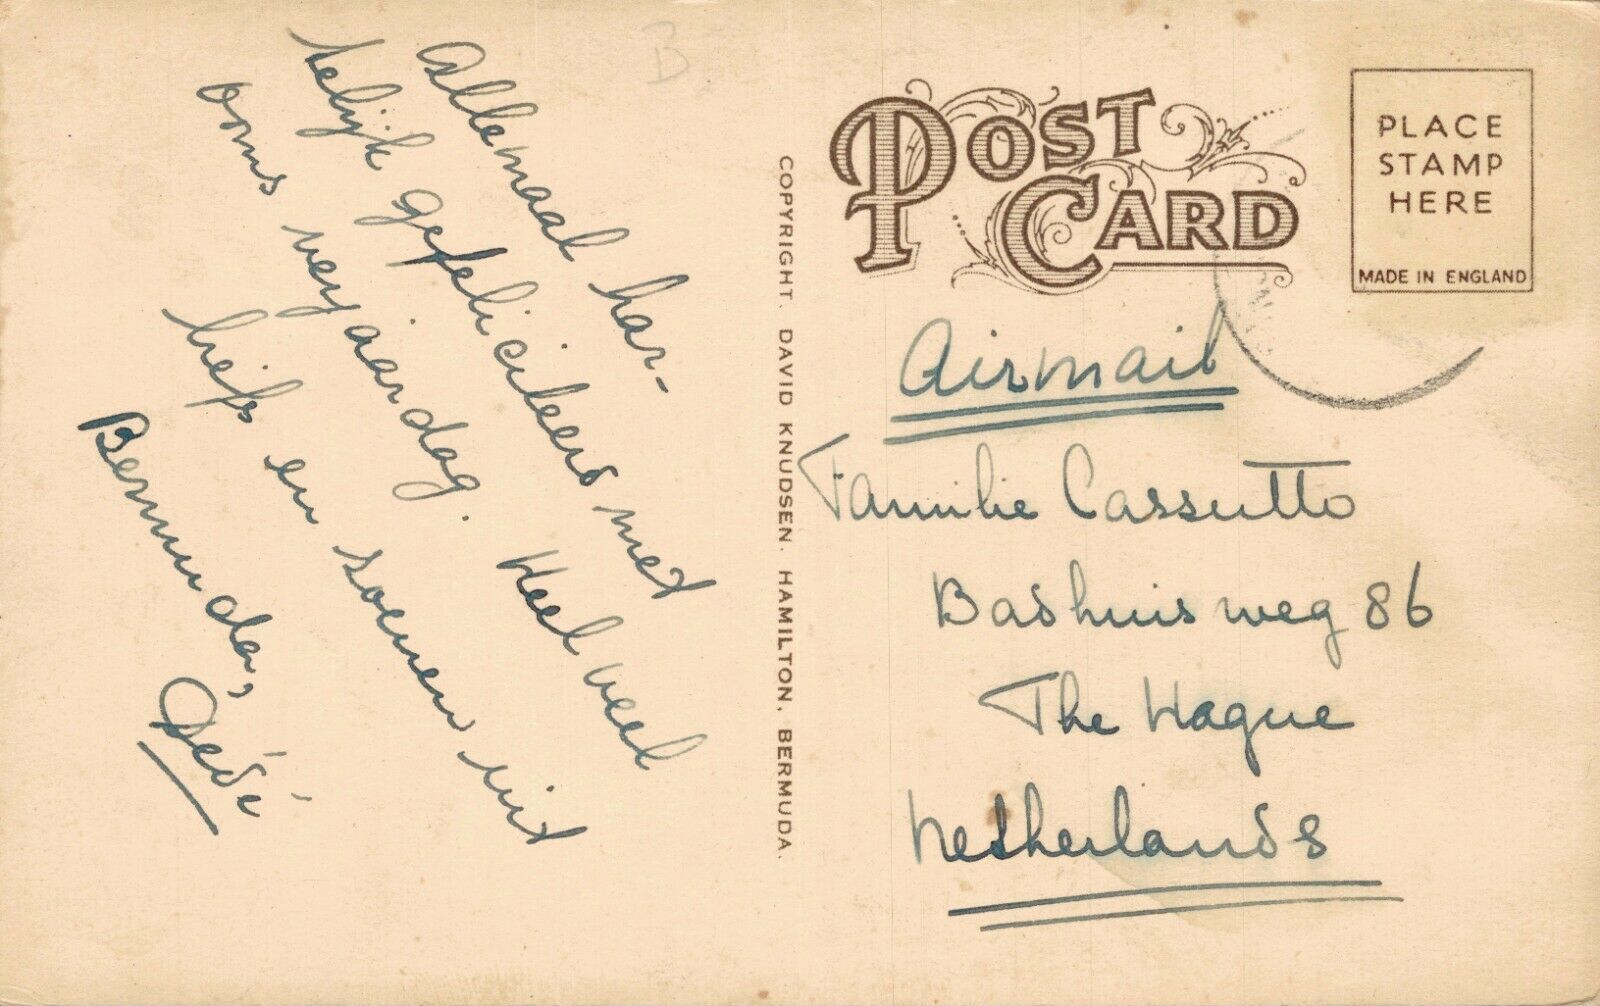 Allemaal har-
telijk gefeliciteerd met
oms verjaardag. Heel veel
liefs en zoenen uit
Bermuda,
Dedé
COPYRIGHT. DAVID KNUDSEN. HAMILTON, BERMUDA.
POST CARD
PLACE
STAMP
HERE
MADE IN ENGLAND
Airmail
Familie Cassutto
Badhuisweg 86
The Hague
Netherlands